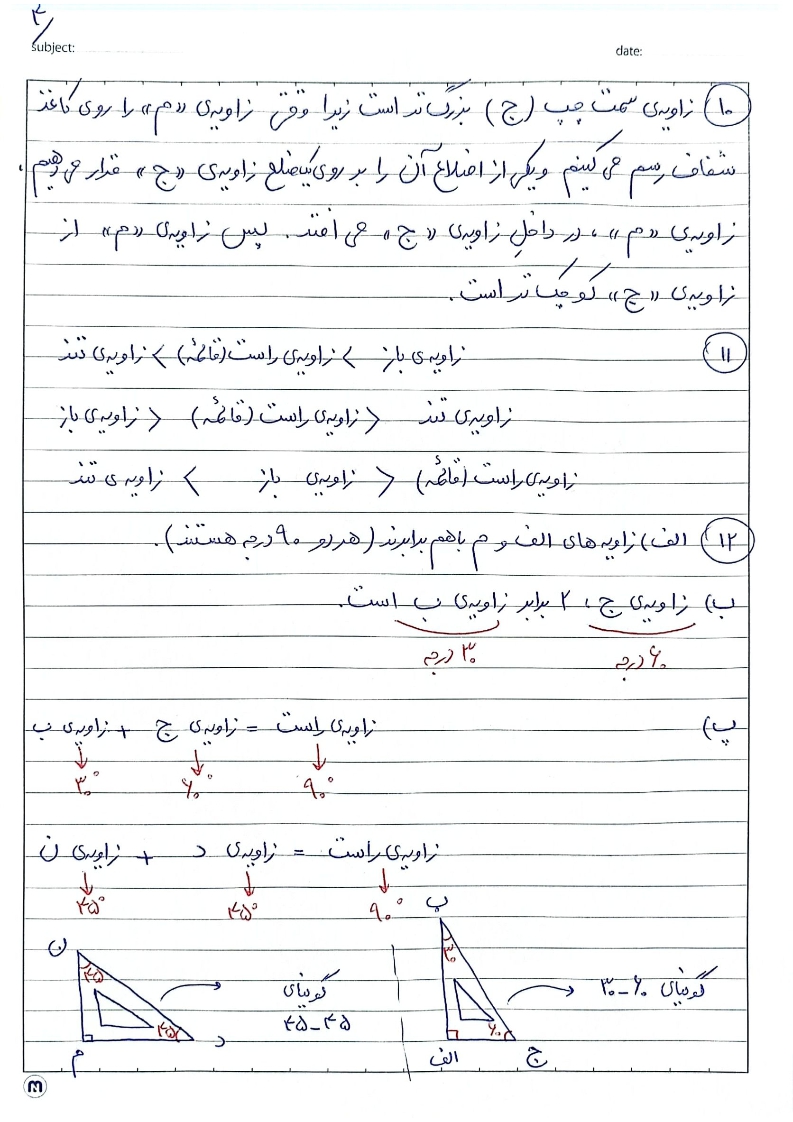 ۴
subject:
date:
۱۰) زاویه‌ی سمت چپ (ج) بزرگ‌تر است زیرا وقتی زاویه‌ی «م» را روی کاغذ
شفاف رسم می کینم و یکی از اضلاع آن را بر روی یک ضلع زاویه‌ی «ج» قرار می دهیم،
زاویه‌ی «م»، در داخلِ زاویه‌ی «ج» می افتد. پس زاویه‌ی «م» از
زاویه‌ی «ج» کوچک تر است.
۱۱) زاویه‌ی باز > زاویه‌ی راست (قائمه) > زاویه‌ی تند
زاویه‌ی تند < زاویه‌ی راست (قائمه) < زاویه‌ی باز
زاویه‌ی راست (قائمه) < زاویه‌ی باز > زاویه ی تند
۱۲) الف) زاویه های الف و م باهم برابرند (هر دو ۹۰ درجه هستند).
ب) زاویه‌ی ج، ۲ برابر زاویه‌ی ب است.
۶۰ درجه ۳۰ درجه
پ) زاویه‌ی راست = زاویه‌ی ج + زاویه‌ی ب
۹۰° ۶۰° ۳۰°
زاویه‌ی راست = زاویه‌ی د + زاویه‌ی ن
۹۰° ۴۵° ۴۵°
ب
۳۰
گونیای ۶۰-۳۰
۶۰
الف
ج
ن
۴۵
گونیای
۴۵-۴۵
۴۵
د
م